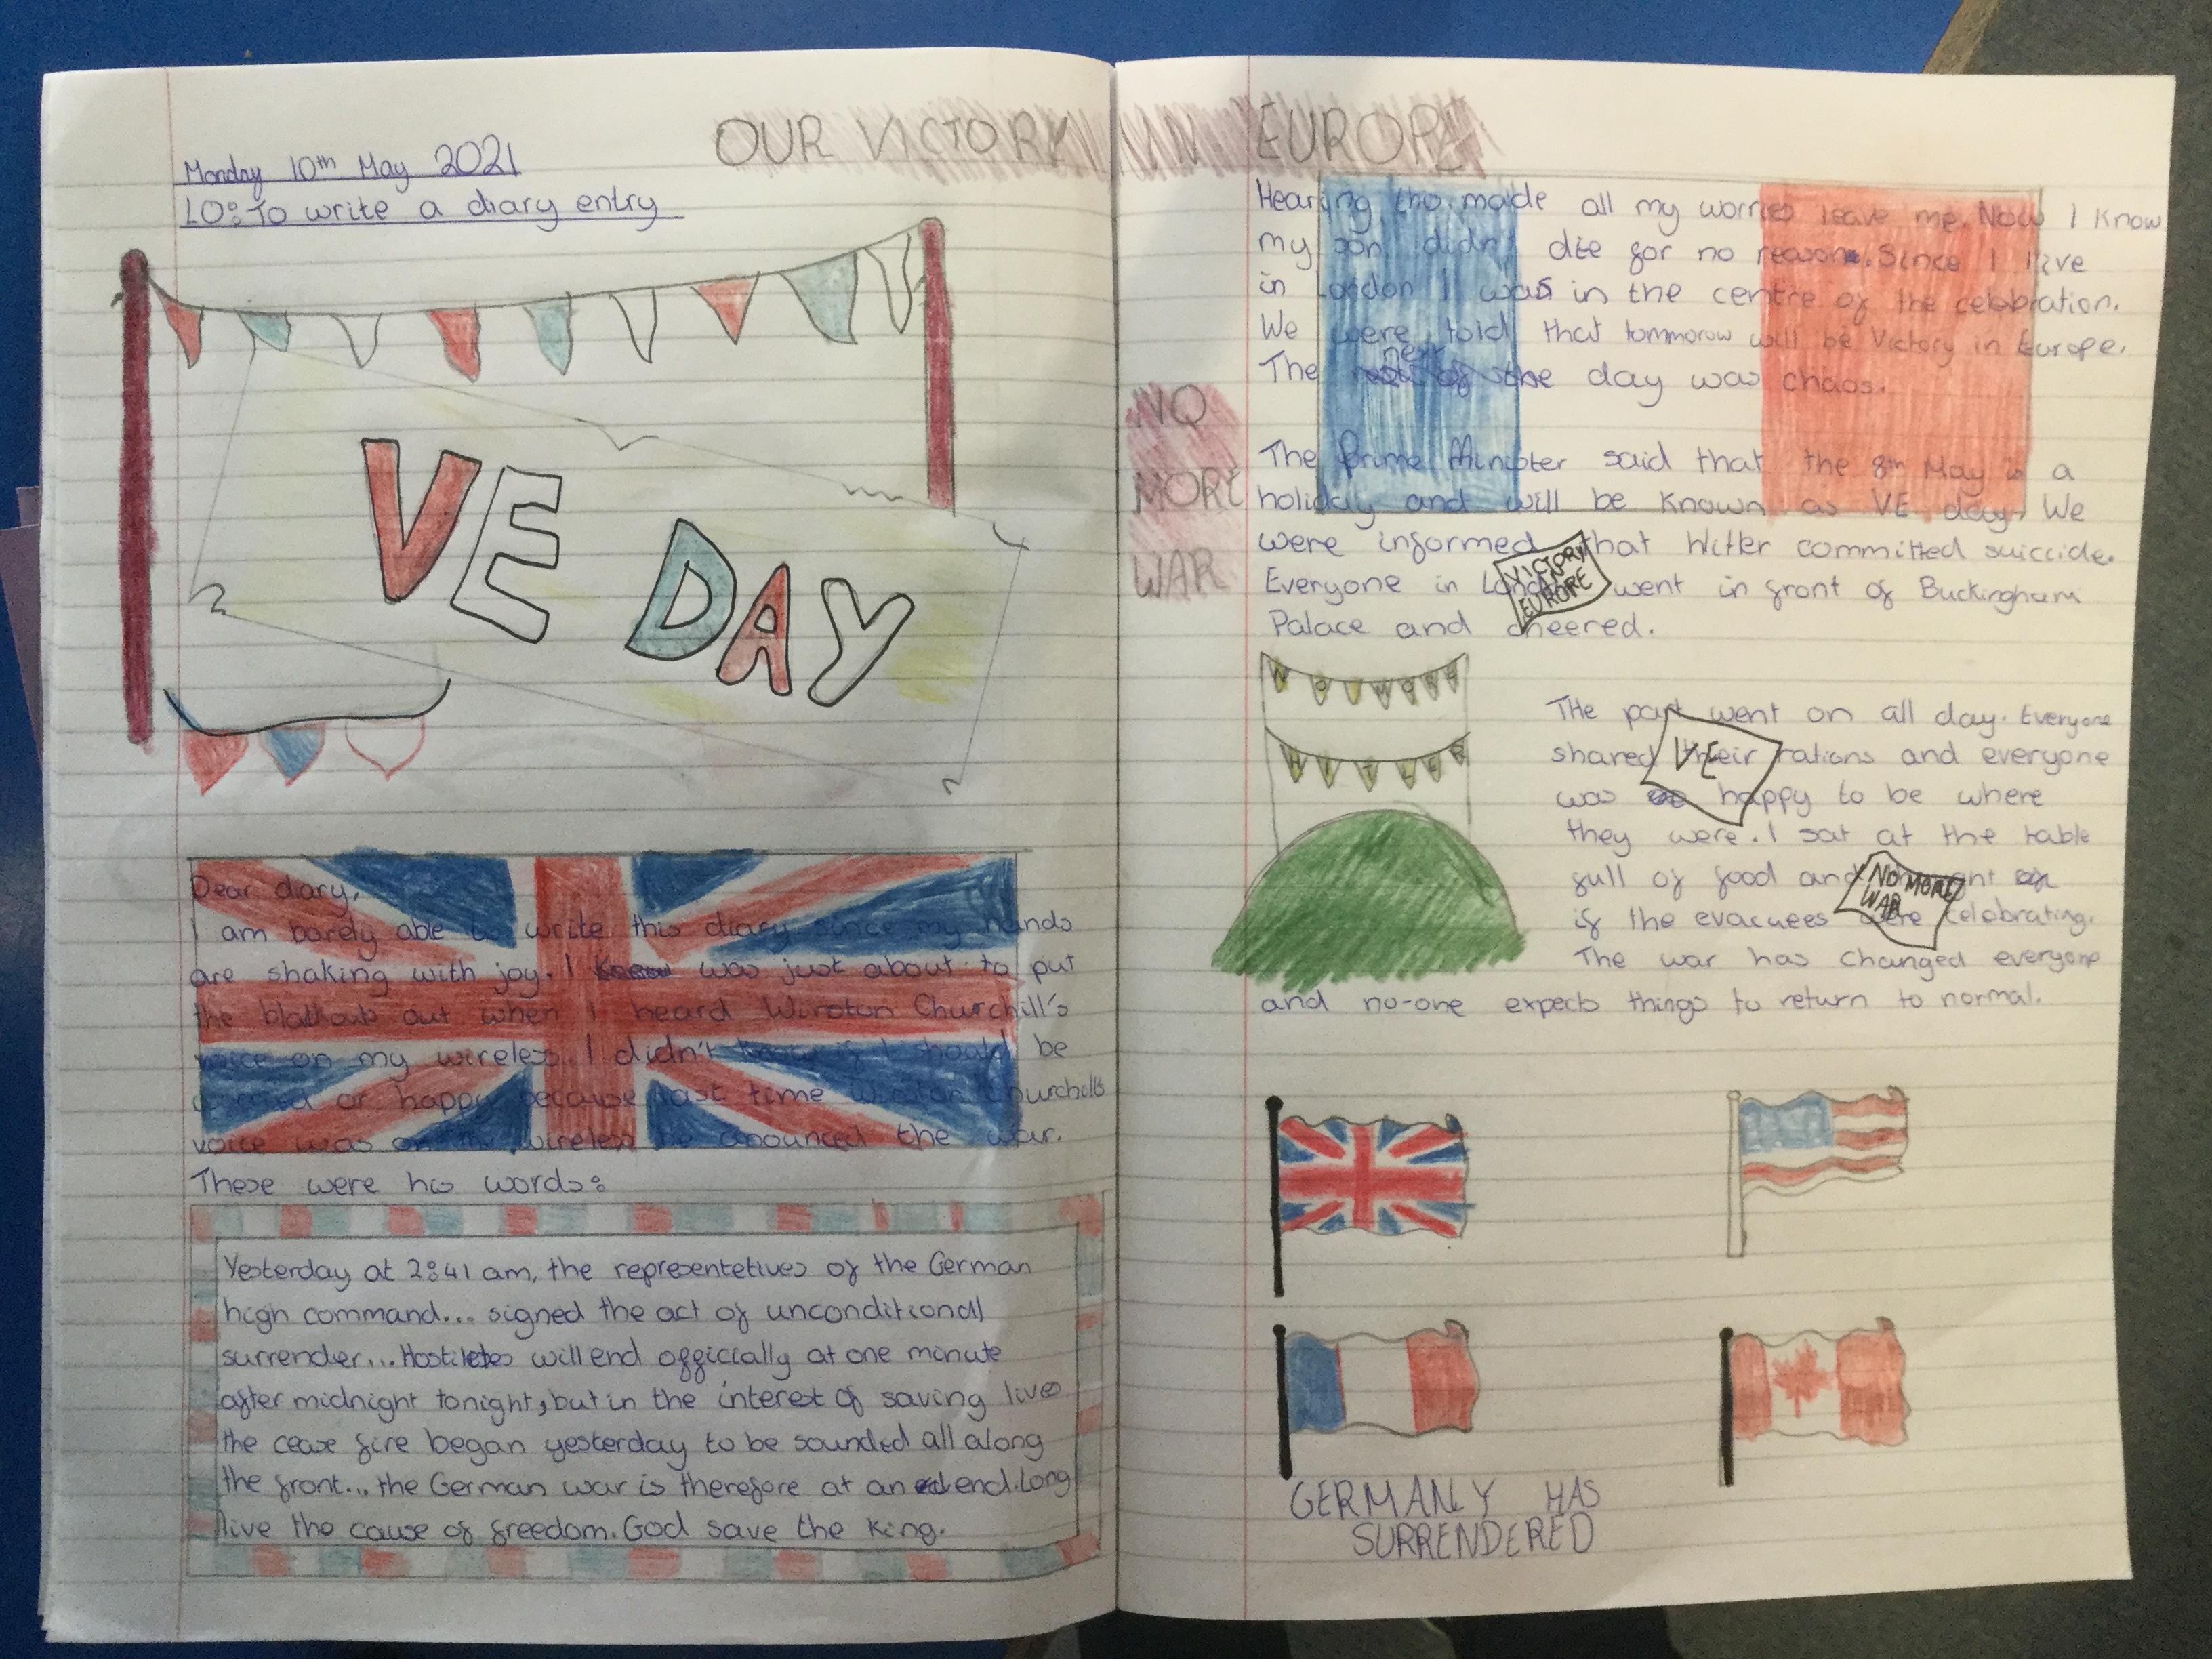 OUR VICTORY IN EUROPE
Monday 10th May 2021
LO: To write a diary entry
VE DAY
Dear diary,
I am barely able to write this diary since my hands
are shaking with joy. I was just about to put
the out when I heard Winston Churchill's
voice on my wireless. I didn't know if I should be
or happy because last time Winston Churchills
voice was on the wireless he anounced the war.
These were his words:
Yesterday at 2:41 am, the representetives of the German
high command... signed the act of unconditional
surrender... will end officially at one minute
after midnight tonight, but in the interest of saving lives
the cease fire began yesterday to be sounded all along
the front... the German war is therefore at an end. Long
live the cause of freedom. God save the King.
Hearing this made all my worries leave me. Now I know
my son didn't die for no reason. Since I live
in London I was in the centre of the celebration.
We were told that tommorow will be Victory in Europe.
The next day was chaos.
NO
MORE
WAR
The Prime Minister said that the 8th May is a
holiday and will be known as VE day. We
were informed that Hitler committed suiccide.
Everyone in London went in front of Buckingham
Palace and cheered.
VICTORY
EUROPE
NO MORE
HITLER
THe party went on all day. Everyone
shared their rations and everyone
was happy to be where
they were. I sat at the table
full of food and
if the evacuees were celebrating.
The war has changed everyone
and no-one expects things to return to normal.
VE
NO MORE
WAR
GERMANY HAS
SURRENDERED